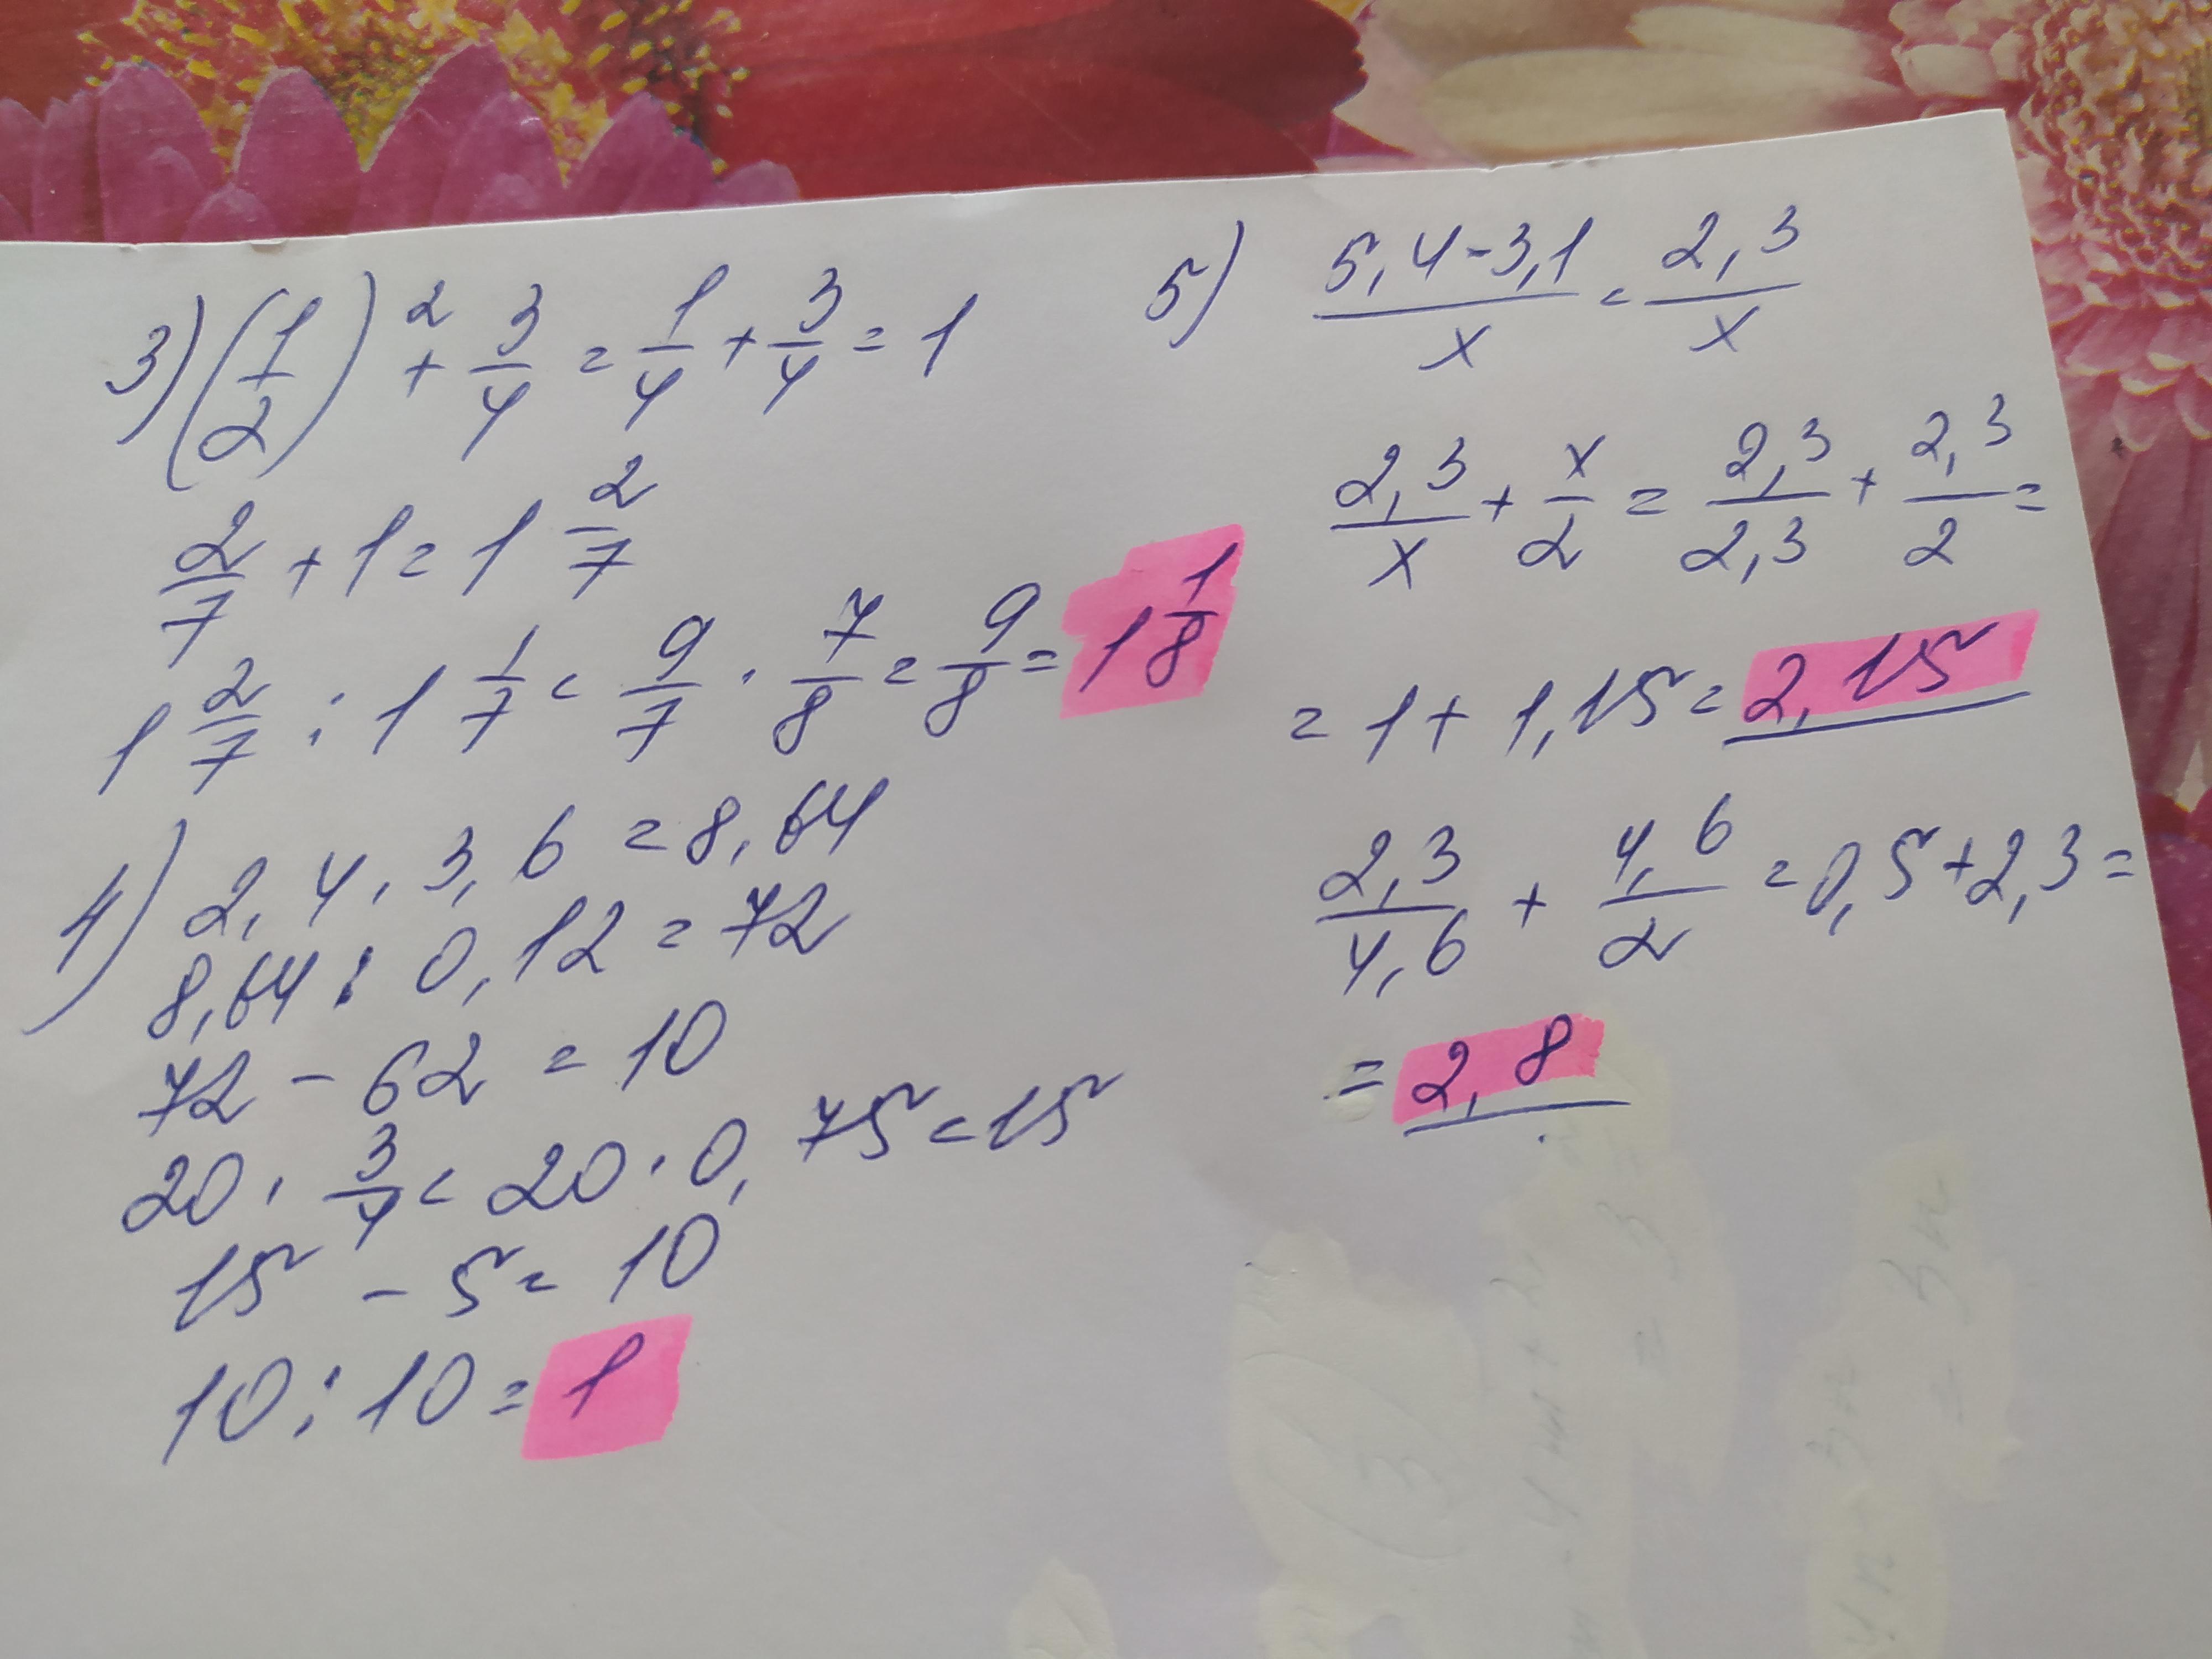 3) (1/2)² + 3/4 = 1/4 + 3/4 = 1
2/7 + 1 = 1 2/7
1 2/7 : 1 1/7 = 9/7 · 7/8 = 9/8 = 1 1/8
4) 2,4 · 3,6 = 8,64
8,64 : 0,12 = 72
72 - 62 = 10
20 · 3/4 = 20 · 0,75 = 15
15 - 5 = 10
10 : 10 = 1
5) (5,4 - 3,1)/x = 2,3/x
2,3/x + x/2 = 2,3/2,3 + 2,3/2 =
= 1 + 1,15 = 2,15
2,3/4,6 + 4,6/2 = 0,5 + 2,3 =
= 2,8